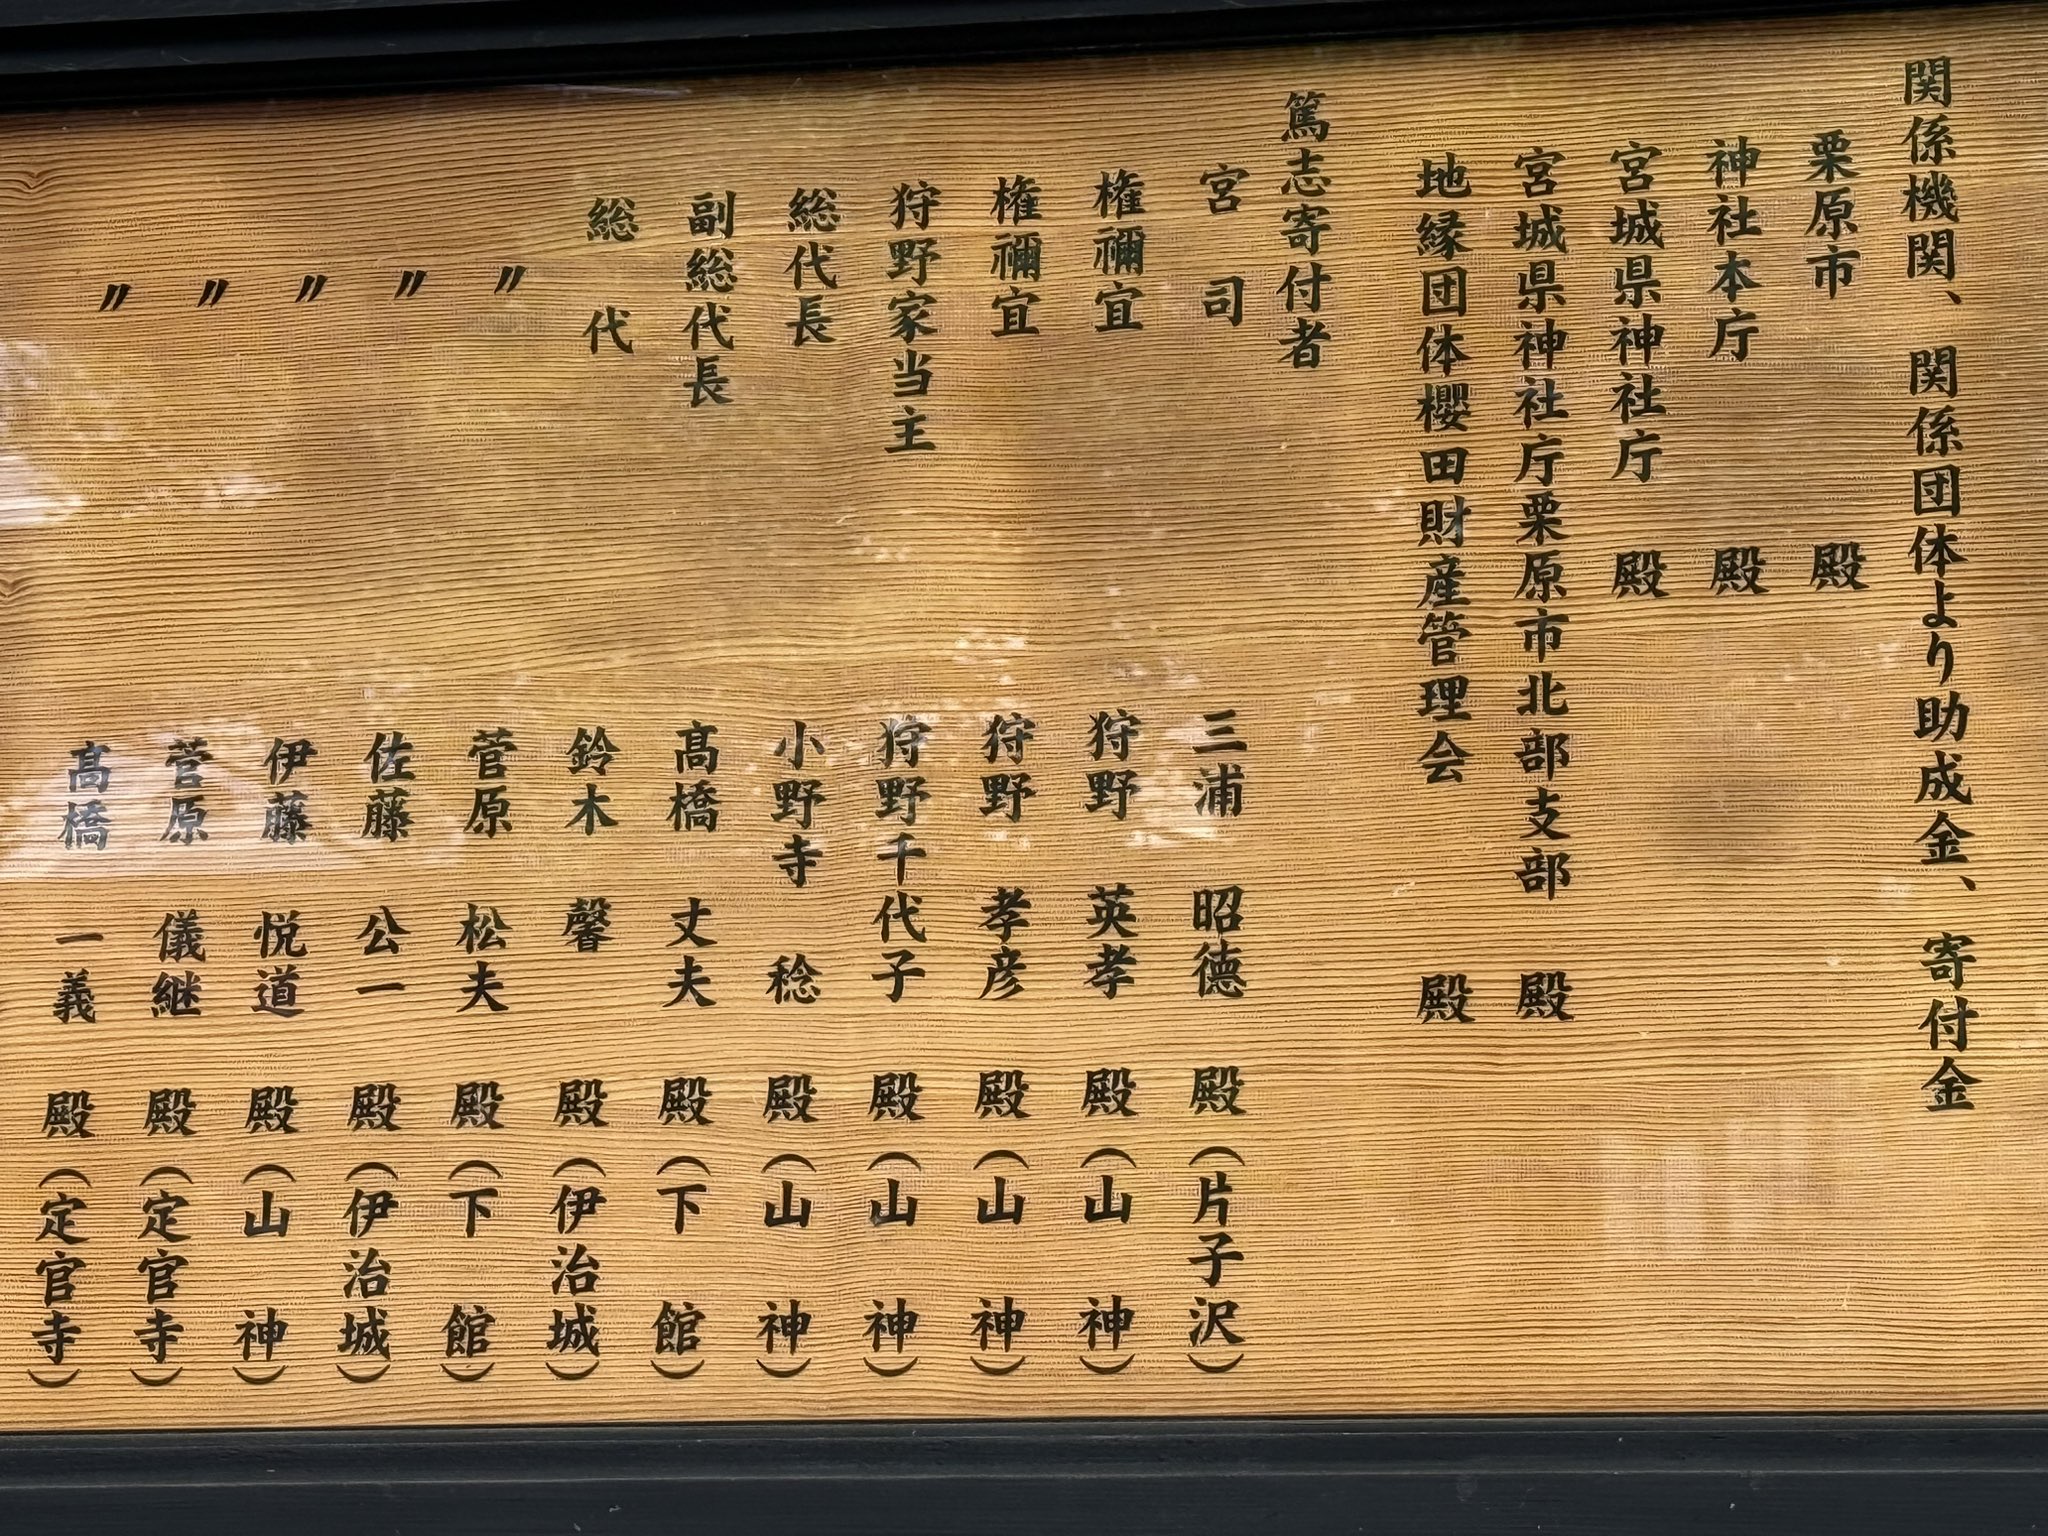 関係機関、関係団体より助成金、寄付金
栗原市 殿
神社本庁 殿
宮城県神社庁 殿
宮城県神社庁栗原市北部支部 殿
地縁団体櫻田財産管理会 殿
篤志寄付者
宮司 三浦 昭德 殿（片子沢）
権禰宜 狩野 英孝 殿（山神）
権禰宜 狩野 孝彦 殿（山神）
狩野家当主 狩野千代子 殿（山神）
総代長 小野寺 稔 殿（山神）
副総代長 髙橋 丈夫 殿（下館）
総代 鈴木 馨 殿（伊治城）
〃 菅原 松夫 殿（下館）
〃 佐藤 公一 殿（伊治城）
〃 伊藤 悦道 殿（山神）
〃 菅原 儀継 殿（定官寺）
〃 髙橋 一義 殿（定官寺）